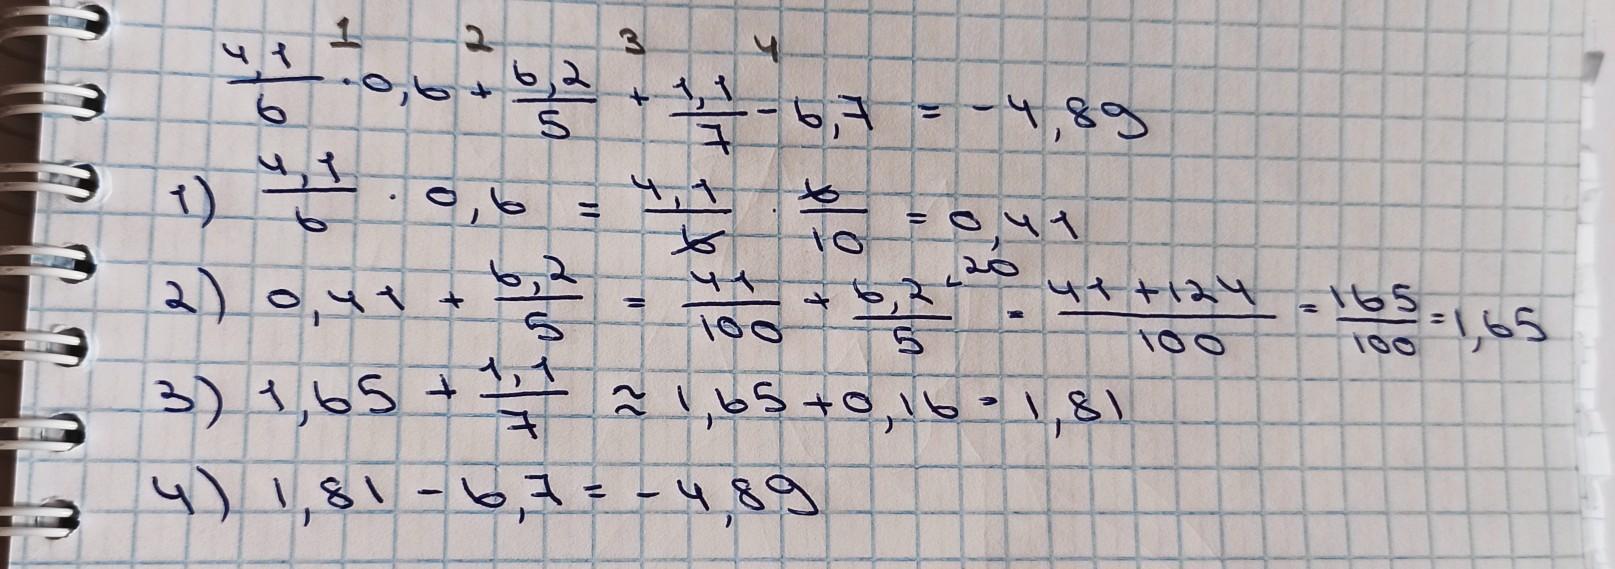 1 2 3 4
4,1/6 · 0,6 + 6,2/5 + 1,1/7 - 6,7 = -4,89
1) 4,1/6 · 0,6 = 4,1/6 · 6/10 = 0,41
2) 0,41 + 6,2/5 = 41/100 + 6,2·20/5 = 41+124/100 = 165/100 = 1,65
3) 1,65 + 1,1/7 ≈ 1,65 + 0,16 = 1,81
4) 1,81 - 6,7 = -4,89